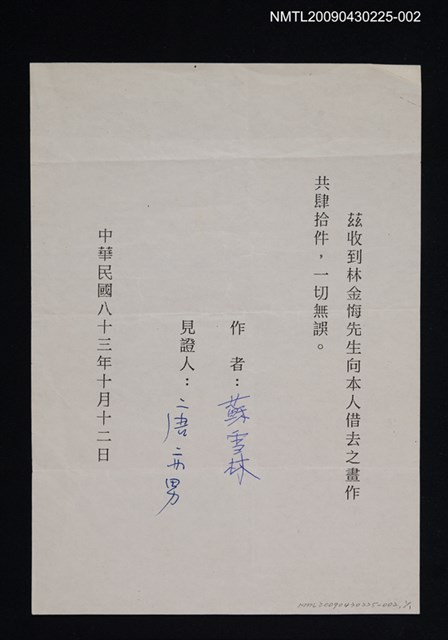 NMTL20090430225-002
茲收到林金悔先生向本人借去之畫作
共肆拾件，一切無誤。
作者：蘇雪林
見證人：唐亦男
中華民國八十三年十月十二日
NMTL20090430225-002